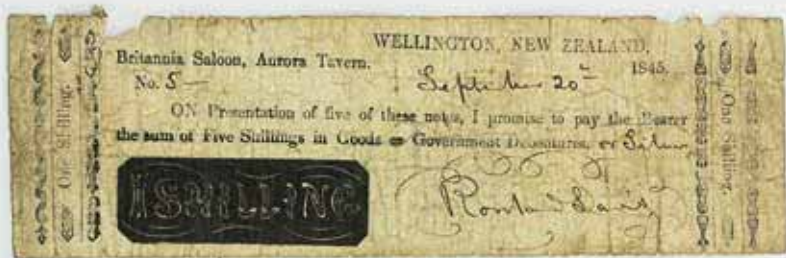 One Shilling.
WELLINGTON, NEW ZEALAND,
Britannia Saloon, Aurora Tavern.
No. 5 — September 20th 1845.
ON Presentation of five of these notes, I promise to pay the Bearer
the sum of Five Shillings in Goods or Government Debentures, or Silver
1 SHILLING
Rowland Davis
One Shilling.